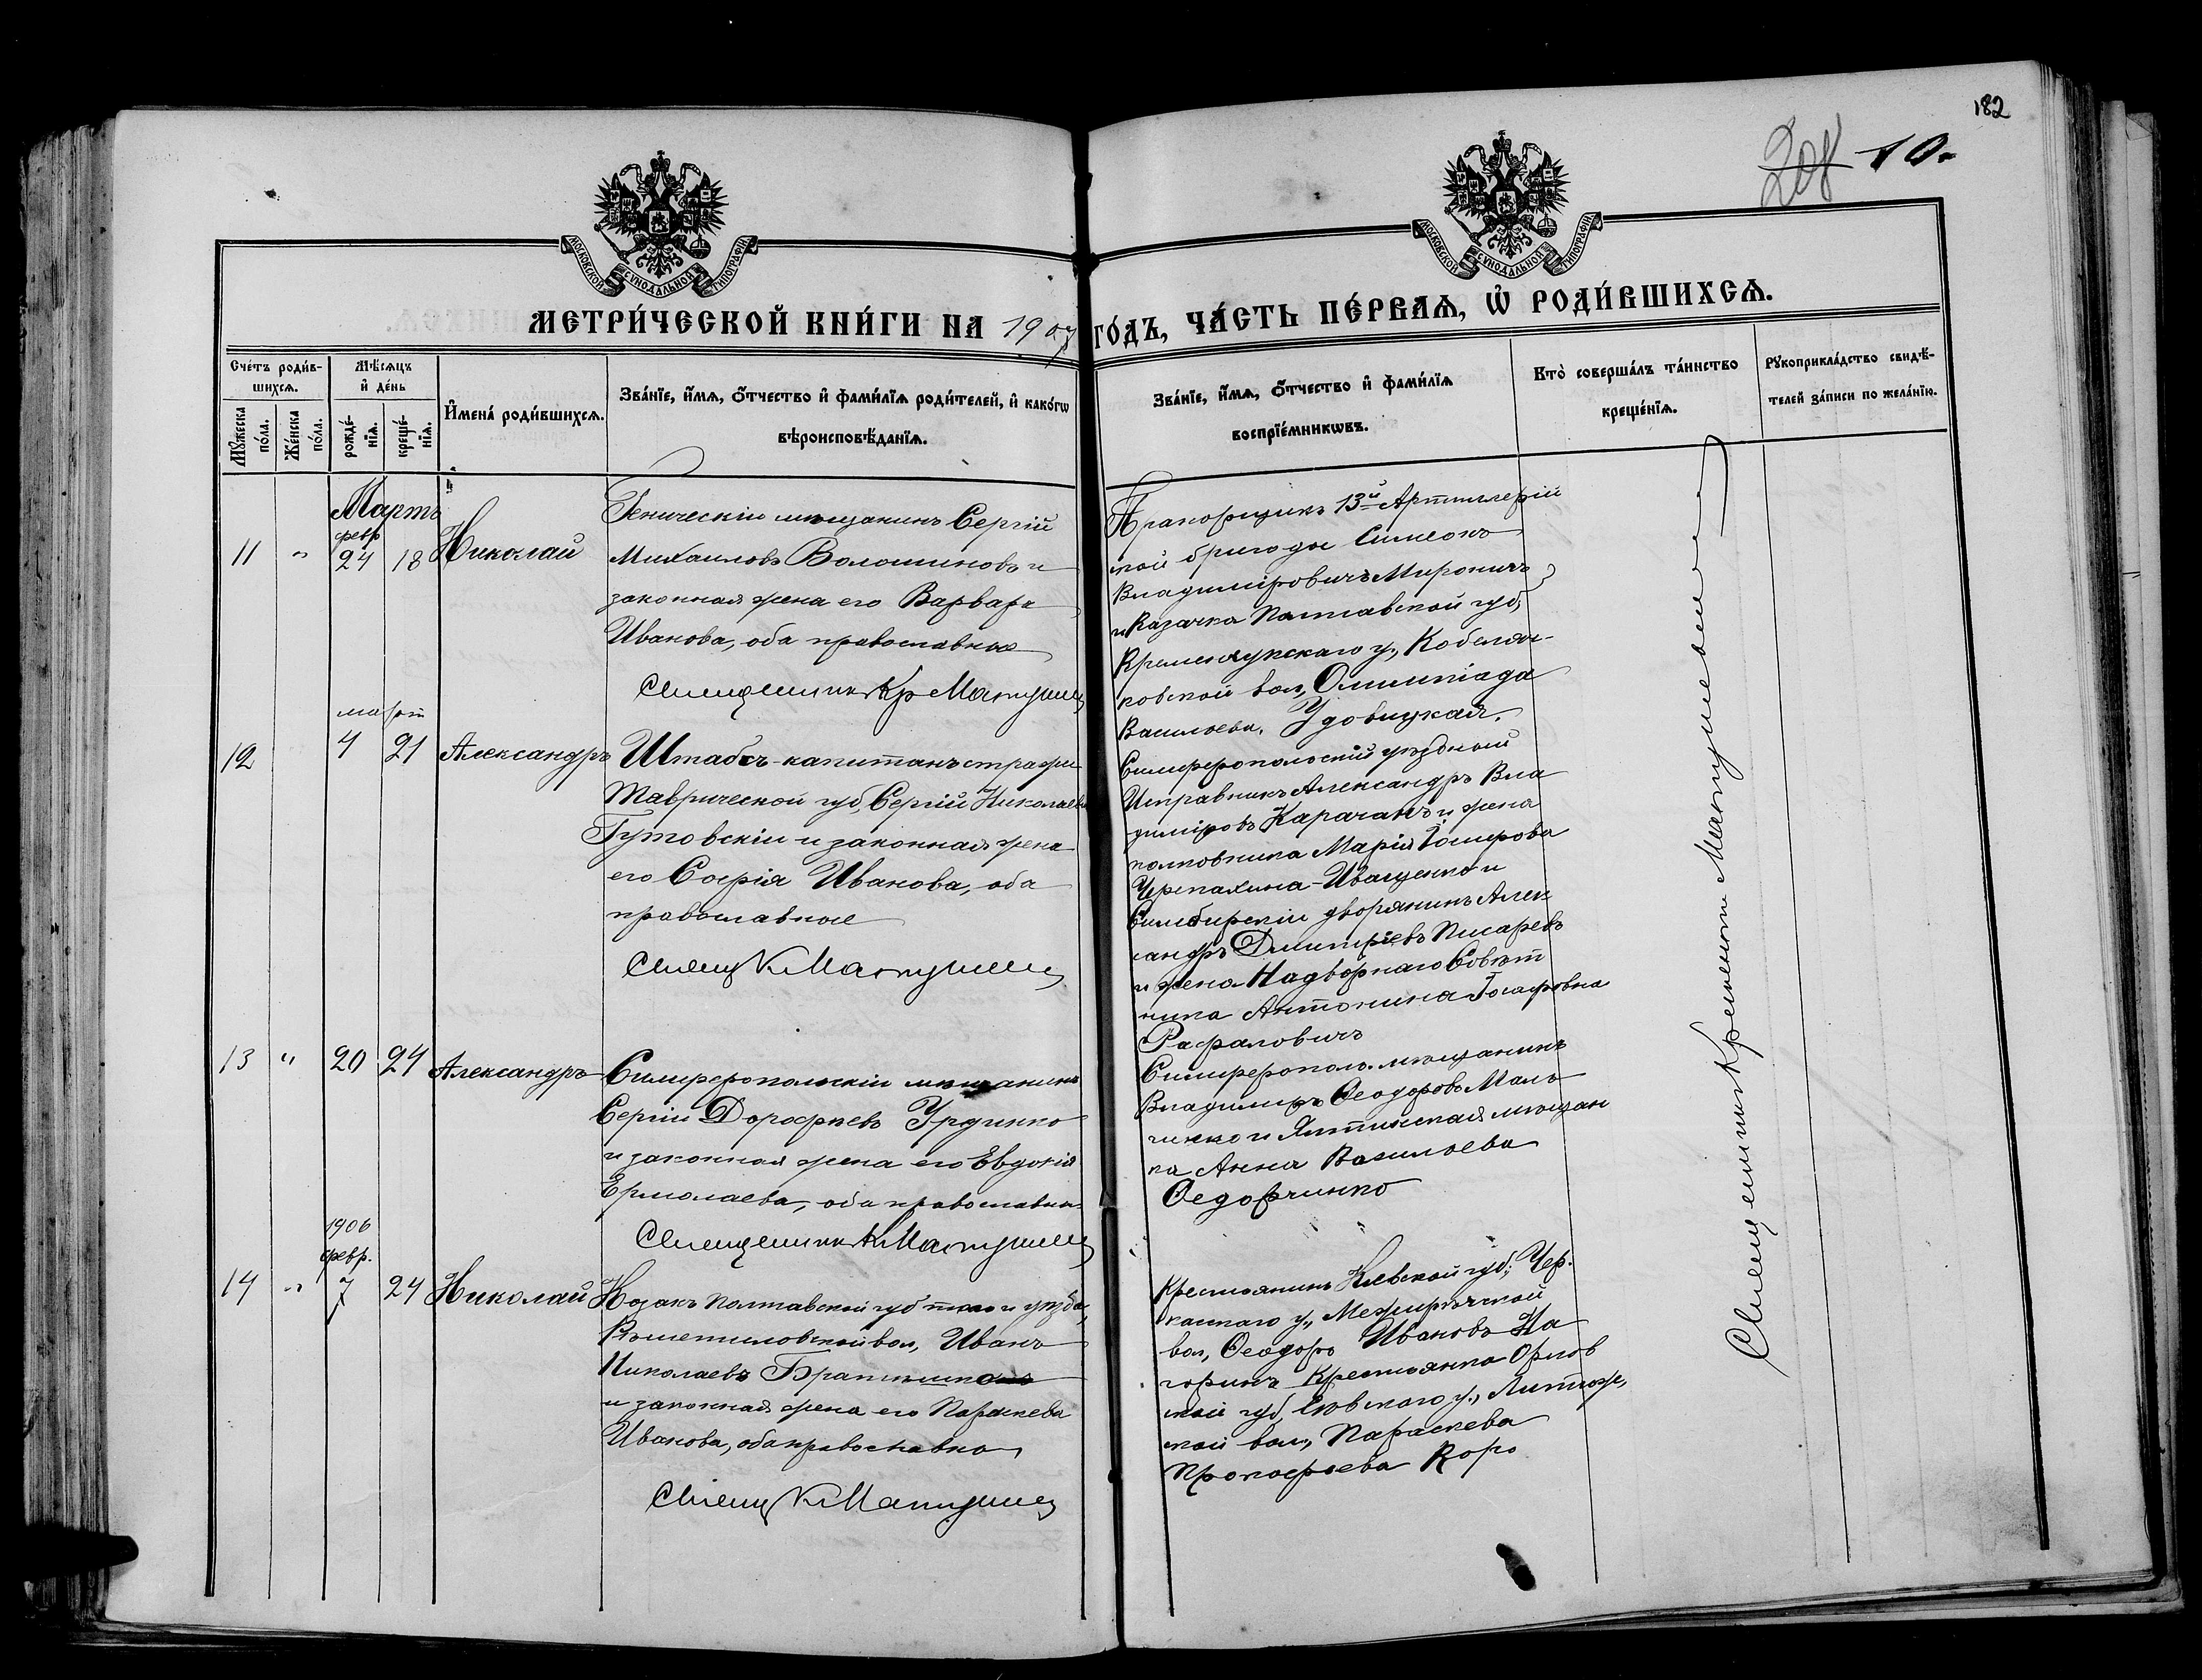 182
208 10.
МОСКОВСКОЙ СѴНОДАЛЬНОЙ ТИПОГРАФІИ
МОСКОВСКОЙ СѴНОДАЛЬНОЙ ТИПОГРАФІИ
МЕТРИ́ЧЕСКОЙ КНИ́ГИ НА 1907 ГО́ДЪ, ЧА́СТЬ ПЕ́РВАѦ, Ѡ҆ РОДИ́ВШИХСѦ.
Сче́тъ роди́в-
шихсѧ.
Мꙋ́жеска по́ла.
Же́нска по́ла.
Мѣ́сѧцъ
и҆ де́нь
рожде́-
нїѧ.
креще́-
нїѧ.
И҆мена̀ роди́вшихсѧ.
Зва́нїе, и҆́мѧ, ѻ҆́тчество и҆ фами́лїѧ роди́телей, и҆ како́гѡ
вѣроисповѣ́данїѧ.
Зва́нїе, и҆́мѧ, ѻ҆́тчество и҆ фами́лїѧ
воспрїе́мникѡвъ.
Кто̀ соверша́лъ та́инство
креще́нїѧ.
Рꙋкоприкла́дство свидѣ́-
телей за́писи по жела́нїю.
Мартъ
февр
11 " 24 18 Николай
Геническій мѣщанинъ Сергій
Михаиловъ Волошиновъ и
законная жена его Варвара
Иванова, оба православные
Священникъ Кр Матушев
Прапорщикъ 13й Артиллерій
ской бригады Симеонъ
Владиміровичъ Мироничъ
и Казачка Полтавской губ,
Кременчукскаго у., Кобеляч-
ковской вол, Олимпіада
Васильева Удовицкая.
мартъ
12 4 21 Александръ
Штабсъ-капитанъ стражи
Таврической губ, Сергій Николаевъ
Гутовскій и законная жена
его Софія Иванова, оба
православные
Священ К Матушев
Симферопольскій уѣздный
Исправникъ Александръ Вла
диміровъ Карачанъ и жена
полковника Марія Іосифова
Черепахина-Иващенко и
Симбирскій дворянинъ Алек
сандръ Димитріевъ Писаревъ
и жена Надворнаго Совѣт
ника Антонина Іосифовна
Рафаловичъ
13 " 20 24 Александръ
Симферопольскій мѣщанинъ
Сергій Дорофеевъ Урдинко
и законная жена его Евдокія
Ермолаева, оба православные
Священникъ К Матушев
Симферопол. мѣщанинъ
Владимиръ Ѳеодоровъ Маль
ченко и Ялтинская мѣщан
ка Анна Васильева
Ѳедорченко
1906
февр.
14 " 7 24 Николай
Козакъ Полтавской губ того и уѣзда,
Рѣшетиловской вол, Иванъ
Николаевъ
и законная жена его Параскева
Иванова, оба православно
Священ К Матушев
Крестьянинъ Кіевской губ; Чер.
касскаго у, Межиричской
вол, Ѳеодоръ Ивановъ На
горинъ Крестьянка Орлов
ской губ, у,
ской вол, Параскева
Прокофьева Коро
Священникъ Климентъ Матушевъ